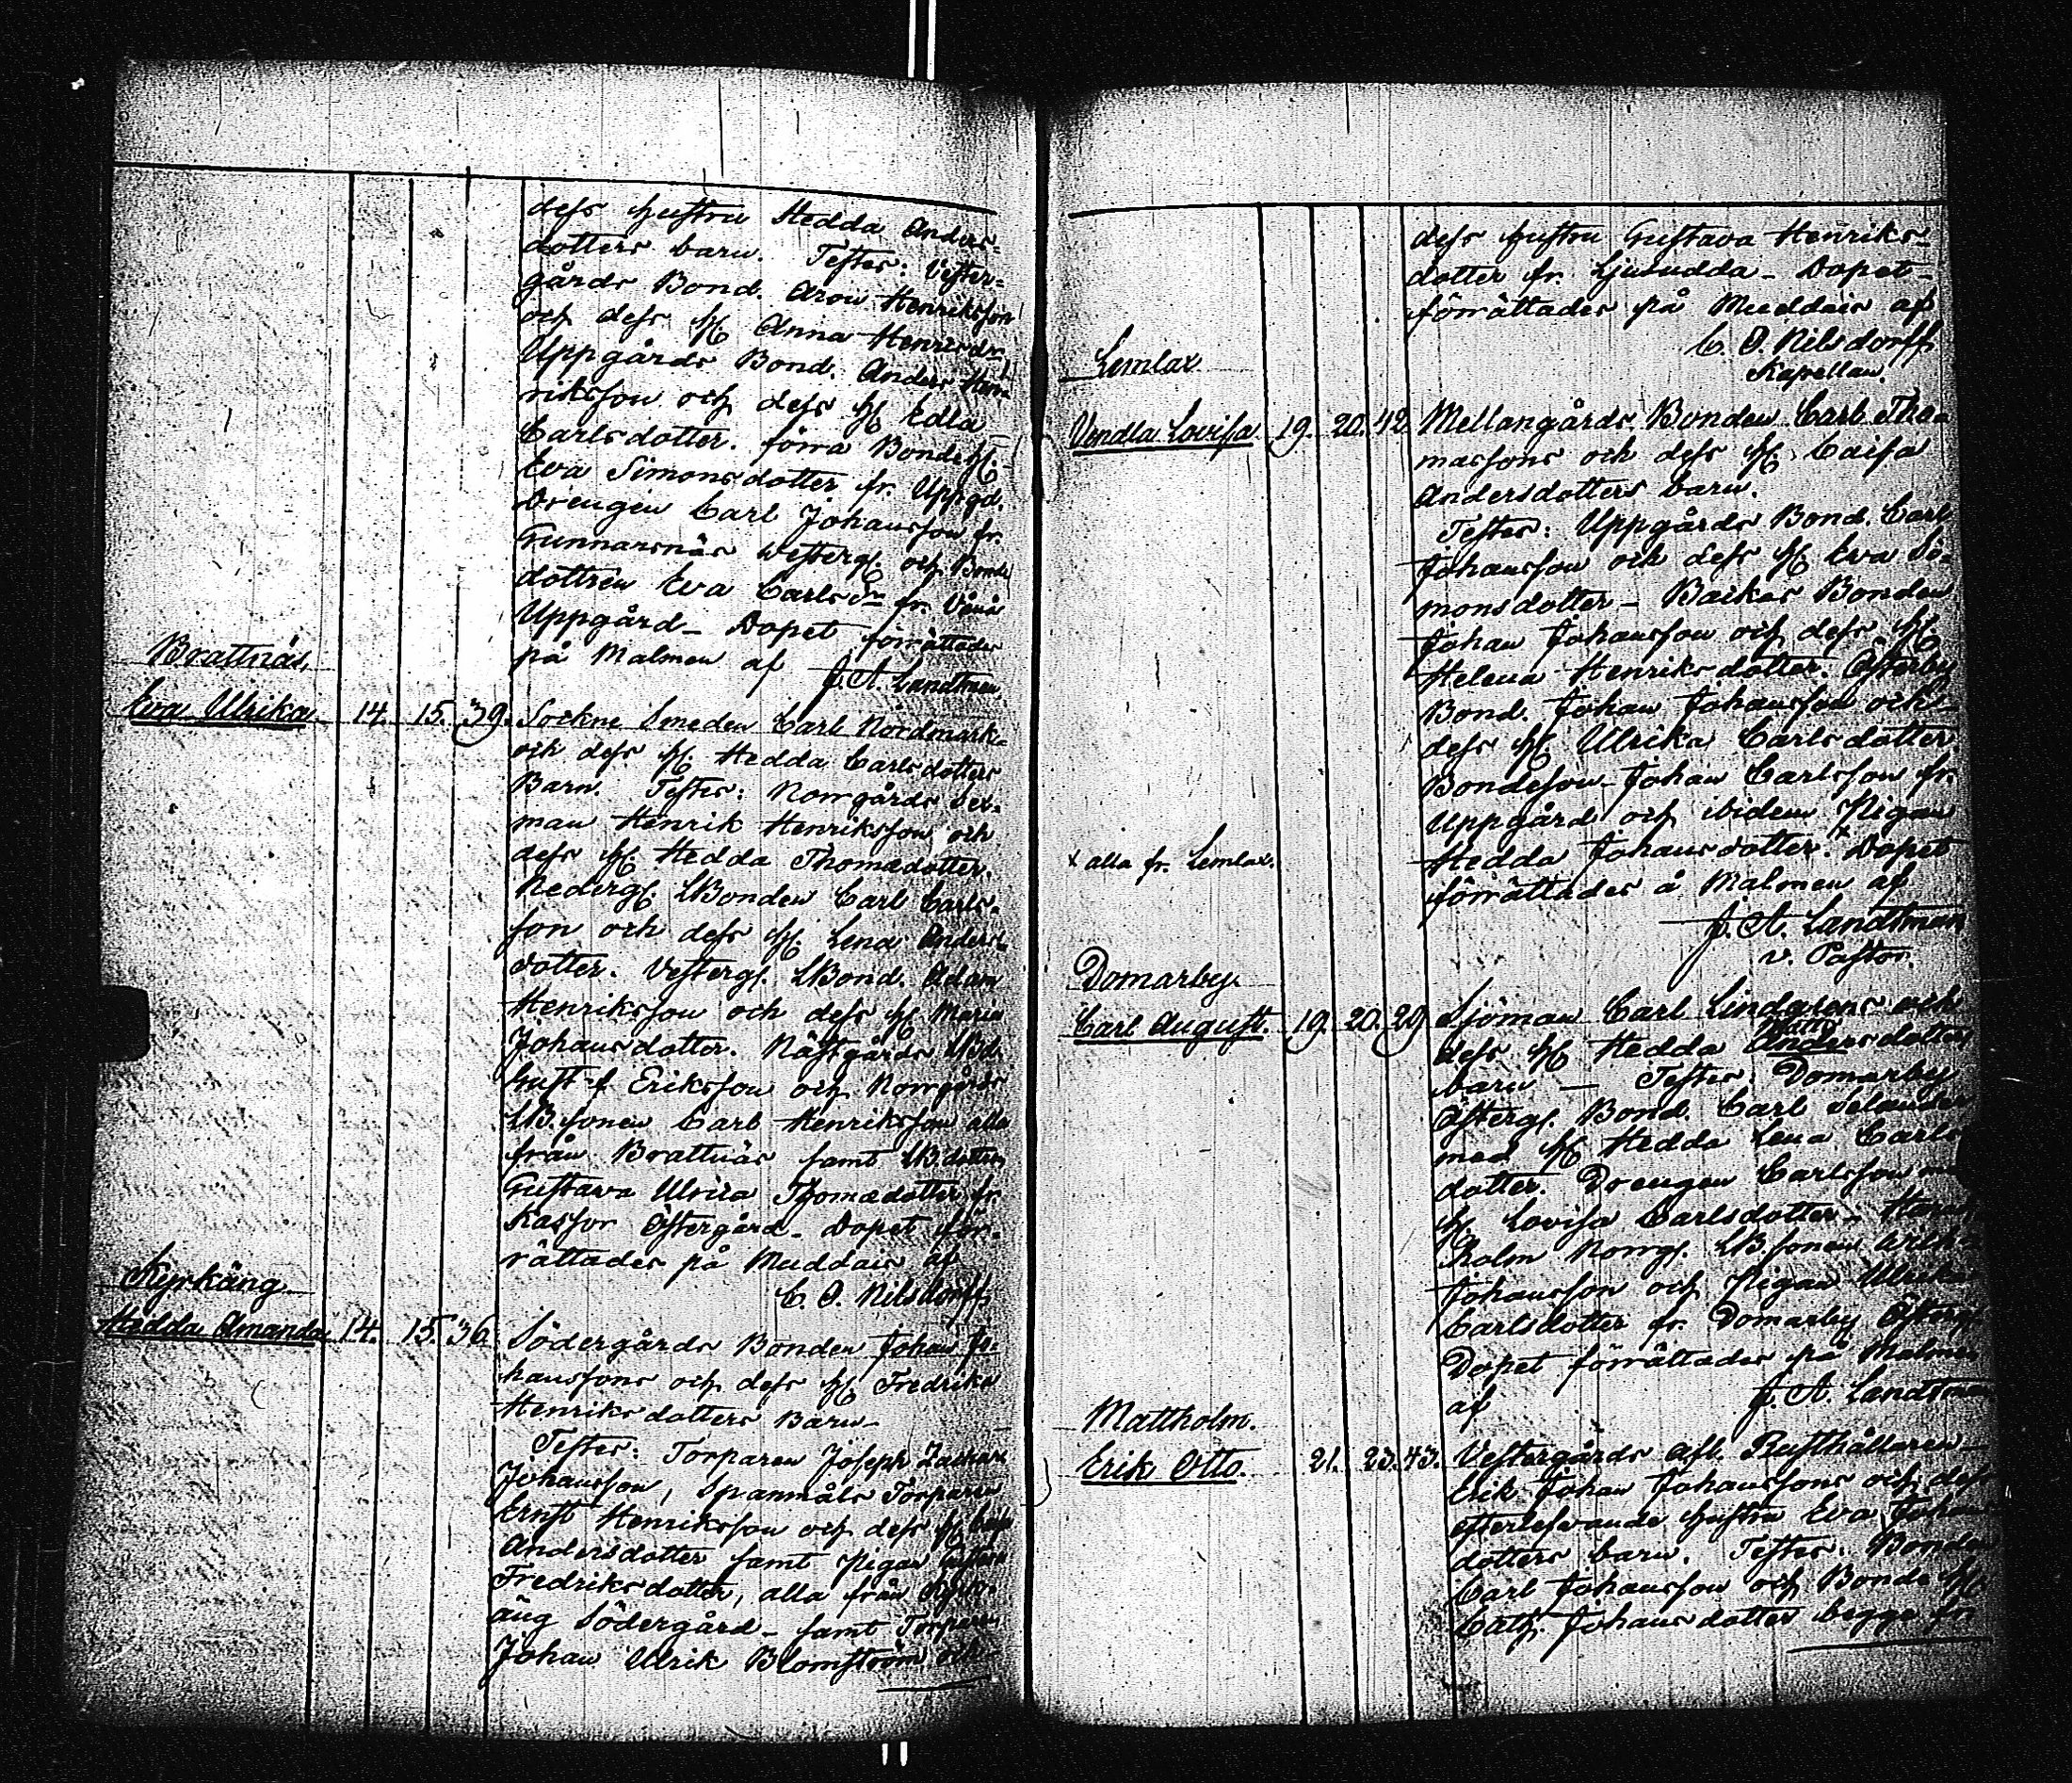 dess hustru Hedda Anders-
dotters barn. Testes: Vester-
gårds Bond. Aron Henriksson
och dess H. Anna Henricsdr,
Uppgårds Bond. Anders Hen-
riksson och dess H. Edla
Carlsdotter. förra Bonde H.
Eva Simonsdotter fr. Uppgd.
Drengen Carl Johansson fr.
Gunnarsnäs Westerg. och Bonde
dottren Eva Carlsdr fr.
Uppgård - Dopet förrättades
på Malmen af J. A. Landtman
Brattnäs,
Eva Ulrika. 14. 15. 39. Sockne Smeden Carl Nordmark
och dess H. Hedda Carlsdotters
Barn. Testes: Norrgårds Sex-
man Henrik Henriksson och
dess H. Hedda Thomædotter.
Nederg. LBonden Carl Carls-
son och dess H. Lena Anders-
dotter. Vesterg. LBond. Adam
Henriksson och dess H. Maria
Johansdotter. Nästgårds
Gust-f Eriksson och Norrgårds
LB. sonen Carl Henriksson alla
från Brattnäs samt LB.dottren
Gustava Ulrica Thomædotter fr.
Kassor Östergård. Dopet för-
rättades på Muddais af
C. O. Nilsdorff
Kyrkäng
Hedda Amanda 14. 15. 36. Södergårds Bonden Johan Jo-
hanssons och dess H. Fredrika
Henriksdotters Barn -
Testes: Torparen Joseph
Johansson, Spanmåls Torparen
Ernst Henriksson och dess H.
Andersdotter samt Pigan
Fredriksdotter, alla från Kyrk-
äng Södergård - samt Torparen
Johan Ulrik Blomström och
dess hustru Gustava Henriks-
dotter fr. Ljusudda - Dopet
förrättades på Muddais af
C. O. Nilsdorff
Kapellan.
Lemlax
Vendla Lovisa. 19. 20. 42. Mellangårds Bonden Carl Tho-
massons och dess H. Caisa
Andersdotters barn.
Testes: Uppgårds Bond. Carl
Johansson och dess H. Eva Si-
monsdotter - Backas Bonden
Johan Johansson och dess H.
Helena Henriksdotter. Österby
Bond. Johan Johansson och
dess H. Ulrika Carlsdotter
Bondeson Johan Carlsson fr.
Uppgård och ibidem Pigan
Hedda Johansdotter.x Dopet
x alla fr. Lemlax.
förrättades å Malmen af
J. A. Landtman
v. Pastor.
Domarby.
Carl August. 19. 20. 29. Sjöman Carl Lindgrens och
dess H. Hedda Andersdotters
barn - Testes: Domarby
Österg. Bond. Carl Selander
med H. Hedda Lena Carls-
dotter. Drengen Carlsson
H. Lovisa Carlsdotter -
holm Norrg. LB.sonen
Johansson och Pigan Ulrika
Carlsdotter fr. Domarby Österg.
Dopet förrättades på Malmen
af J. A. Landtman
Mattholm.
Erik Otto. 21. 23. 43. Vestergårds afl. Rusthållaren
Erik Johan Johanssons och dess
efterlefvande hustru Eva Johans
dotters barn. Testes: Bonden
Carl Johansson och Bonde H.
Cath. Johansdotter begge fr.